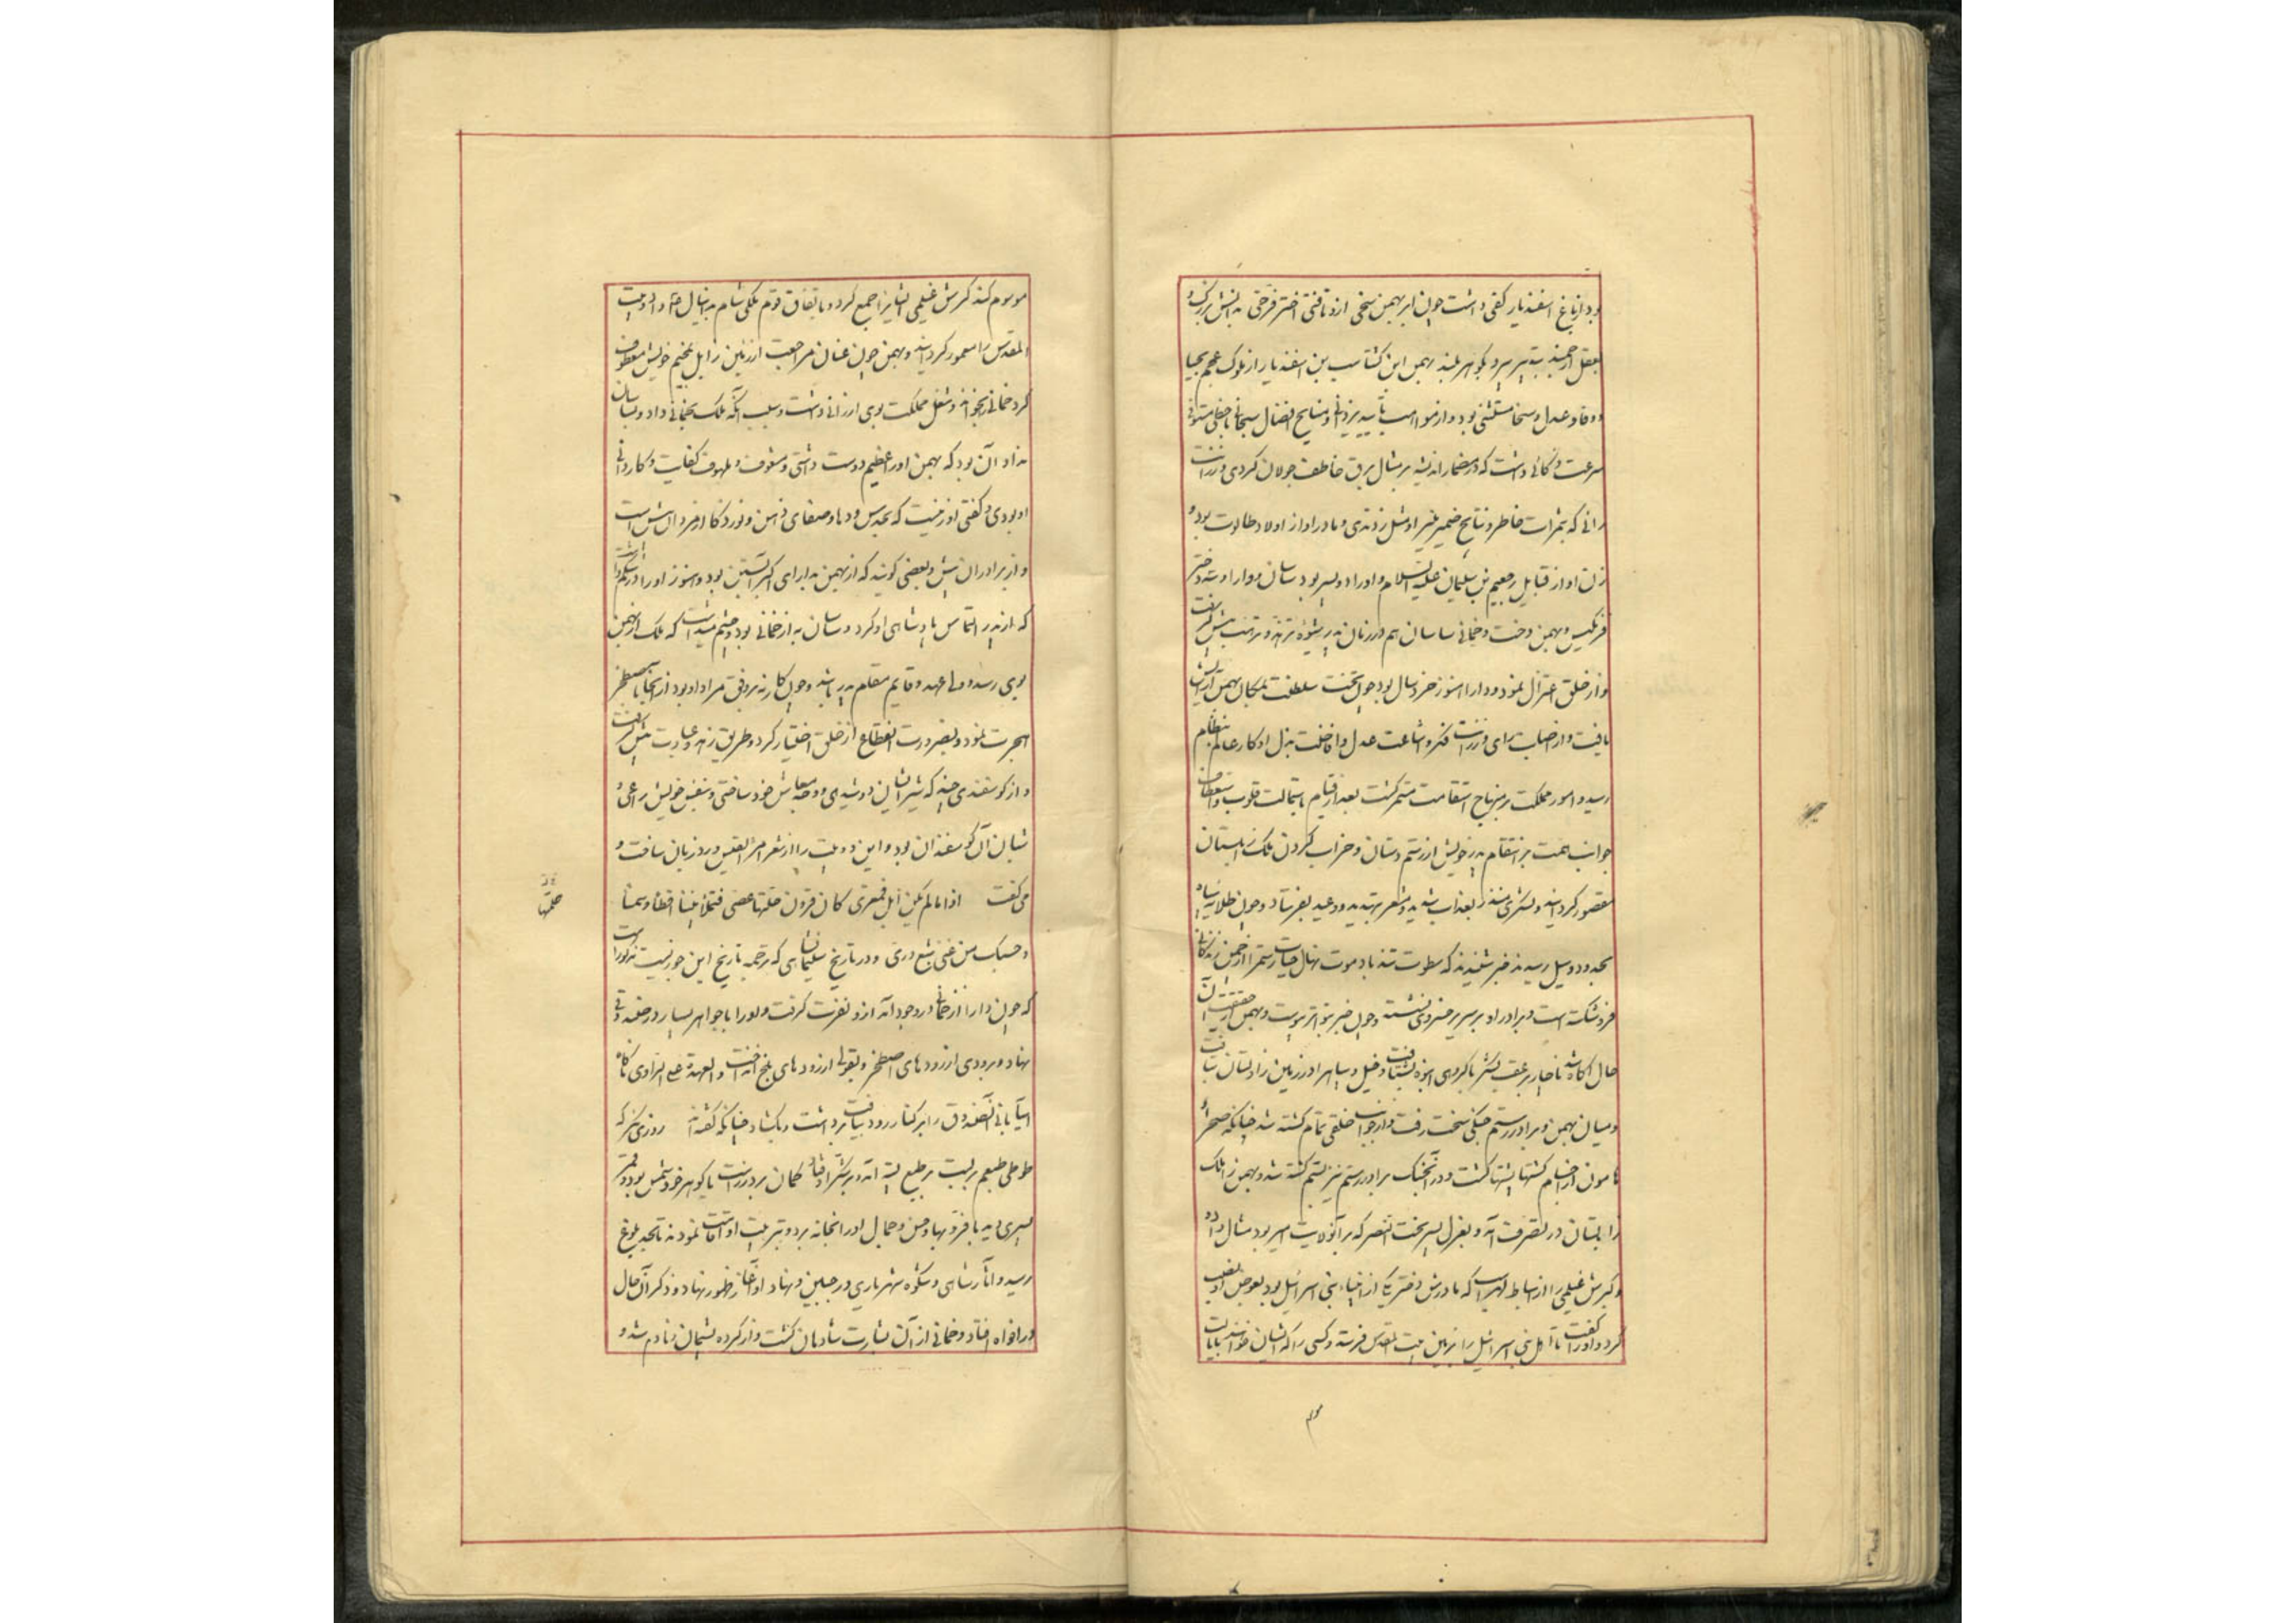 بود از باغ اسفندیار کفی داشت چون ابر بهمن سخی ازو تافتی اختر فرخی بدانش بزرگ و
بعقل ارجمند بتدبیر پیر و بگوهر بلند بهمن ابن کشتاسب بن اسفندیار از ملوک عجم بحیا
و وفا و عدل و سخا مستثنی بود و از مواهب تأیید یزدانی و منایح افضال سبحانی باحظی متوفی
سرعت ذکائی داشت که در مضمار اندیشه بر مثال برق خاطف جولان کردی و رزانت
رائی که بثمرات خاطر و نتایج ضمیر منیر او مثل زدندی و مادر او از اولاد طالوت بود و
زن او از قبایل رحبعم بن سلیمان علیه السلام و او را دو پسر بود ساسان و دارا و سه دختر
فرنکیس و بهمن دخت و خمانی ساسان هم در زمان پدر شیوه تزهد و ترهب پیش گرفت
و از خلق اعتزال نمود و دارا هنوز خردسال بود چون تخت سلطنت بمکان بهمن آرایش
یافت و از اصابت رای و رزانت فکر و اشاعت عدل و افاضت بذل او کار عالم بنظام
رسید و امور مملکت بر منهاج استقامت مستمر کشت بعد از قیام باستمالت قلوب و استعطاف
جوانب همت بر انتقام پدر خویش از رستم دستان و خراب کردن ملک زابلستان
مقصور کردانید و لشکری منذر بعذاب شدید و مشعر بتهدید و وعید بفرستاد و چون طلایه سپاه
بحدود دویل رسیدند خبر شنیدند که سطوت تندباد موت نهال حیات رستم را از چمن زندگانی
فرو شکسته است و برادر او بر سریر خسروی نشسته و چون خبر بتواتر پیوست و بهمن از حقیقت آن
حال آگاه شد ناچار بر عقب لشکر با گروهی انبوه بشتافت و خیل و سپاه را در زمین زاولستان بتافت
و میان بهمن و برادر رستم جنکی سخت رفت و از جوانب خلقی تمام کشته شد چنانکه صحرا و
هامون از اجسام کشتها پشتها کشت و در آنجنک برادر رستم نیز بستم کشته شد و بهمن را ملک
زابلستان در تصرف آمد و بعزل پسر بخت النصر که بر آنولایت امیر بود مثال داد
و کیرش غیلمی را از اسباط لهراسب که مادرش دختر یکی از انبیاء بنی اسرائیل بود بعوض او نصب
کرد و او را گفت تا اهل بنی اسرائیل را بزمین بیت المقدس فرستد و کسی را که ایشان خواهند بایالت
موسوم کند کیرش غیلمی ایشانرا جمع کرد و باتفاق قوم ملکی شام بدانیال عم داد و بیت
المقدس را معمور کردانید و بهمن چون عنان مراجعت از زمین زابل بمخیم خویش معطوف
کرد خمانی را بخواند و شغل مملکت بوی ارزانی داشت و سبب آنکه ملک بخمانی داد و بساسان
نداد آن بود که بهمن او را عظیم دوست داشتی و مشعوف و ملهوف کفایت و کاردانی
او بودی و گفتی او زنیست که بحدس و دها و صفای ذهن و نور ذکا از مردان بیش است
و از برادران پیش و بعضی گویند که از بهمن بدارای اکبر آبستن بود و هنوز او را در شکم داشت
که از پدر التماس پادشاهی او کرد و ساسان به از خمانی بود و چشم میداشت که ملک از بهمن
بوی رسد و ولی عهد و قایم مقام پدر باشد و چون کار نه بر وفق مراد او بود از آنجا باصطخر
هجرت نمود و بضرورت انقطاع از خلق اختیار کرد و طریق زهد و عبادت پیش گرفت
و از گوسفندی چند که شیر ایشان دوشیدی وجه معاش خود ساختی و بنفس خویش راعی و
شبان آن گوسفندان بود و این دو بیت را از شعر امرء القیس ورد زبان ساخت و
می گفت اذا ما لم یکن ابل فمعزی کان قرون جلتها عصی فتملأ بیتنا اقطا و سمنا
و حسبک من غنی شبع و ری و در تاریخ سلیمان شاهی که ترجمه تاریخ ابن جوزیست مذکور است
که چون دارا از خمانی در وجود آمد ازو نفرت گرفت و او را با جواهر بسیار در صندوقی
نهاد و برودی از رودهای اصطخر و بقولی از رودهای بلخ انداخت و العهدة علی الراوی ناکاه
آسیابانی آنصندوق را بر کنار رود بیافت برداشت و بکشاد چنانکه گفته‌اند روزی سرکه
طوطی طبعم بر لب
پسری دید با فر و بها و حسن و جمال او را بخانه برد و بتربیت او اقامت نمودند تا بحد بلوغ
رسید و آثار شاهی و شکوه شهریاری در جبین و نهاد او آغاز ظهور نهاد و ذکر آن حال
در افواه افتاد و خمانی از آن بشارت شادمان کشت و از کرده پشیمان و نادم شد و
جلتها